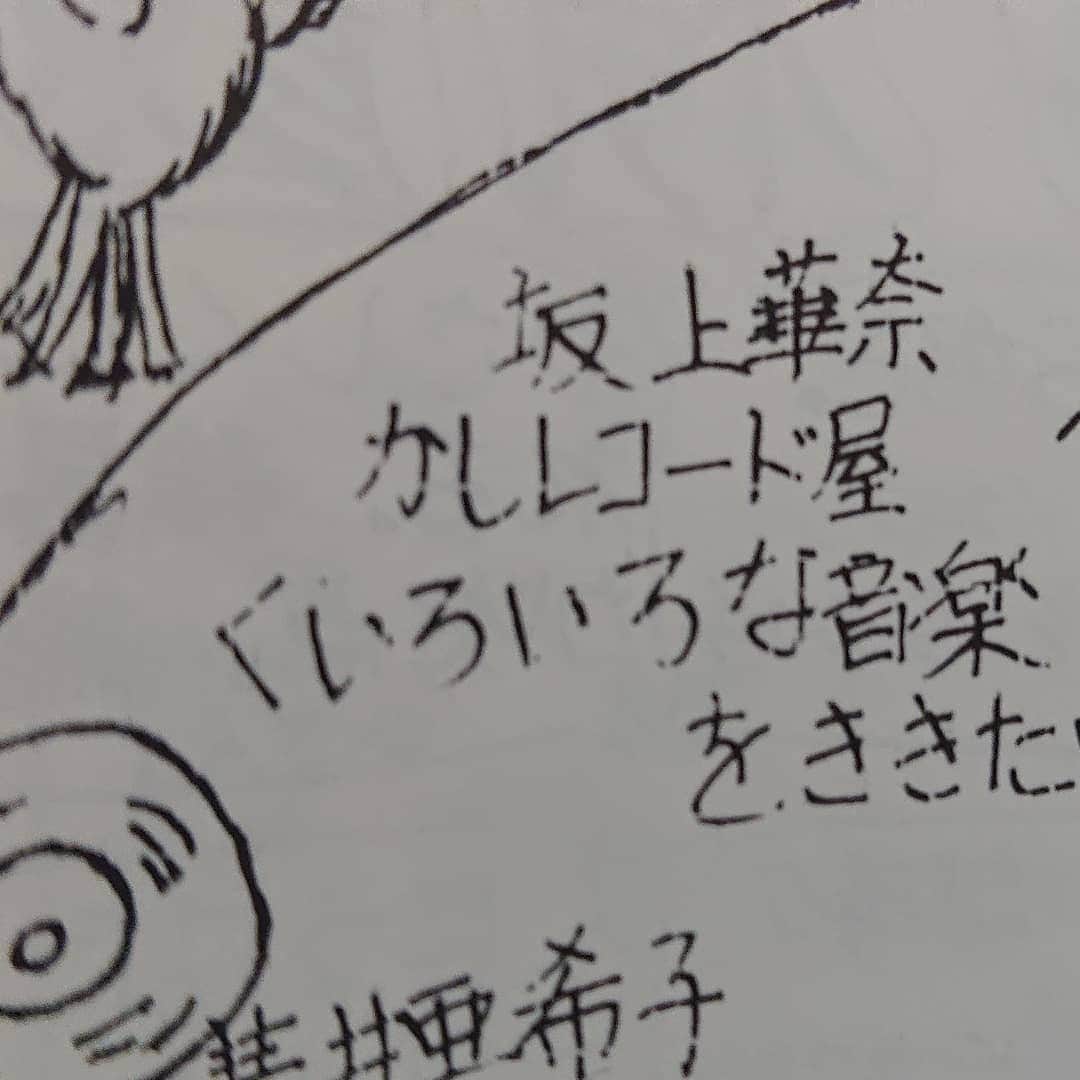 坂上華奈
かしレコード屋
「いろいろな音楽
をききたい
井亜希子